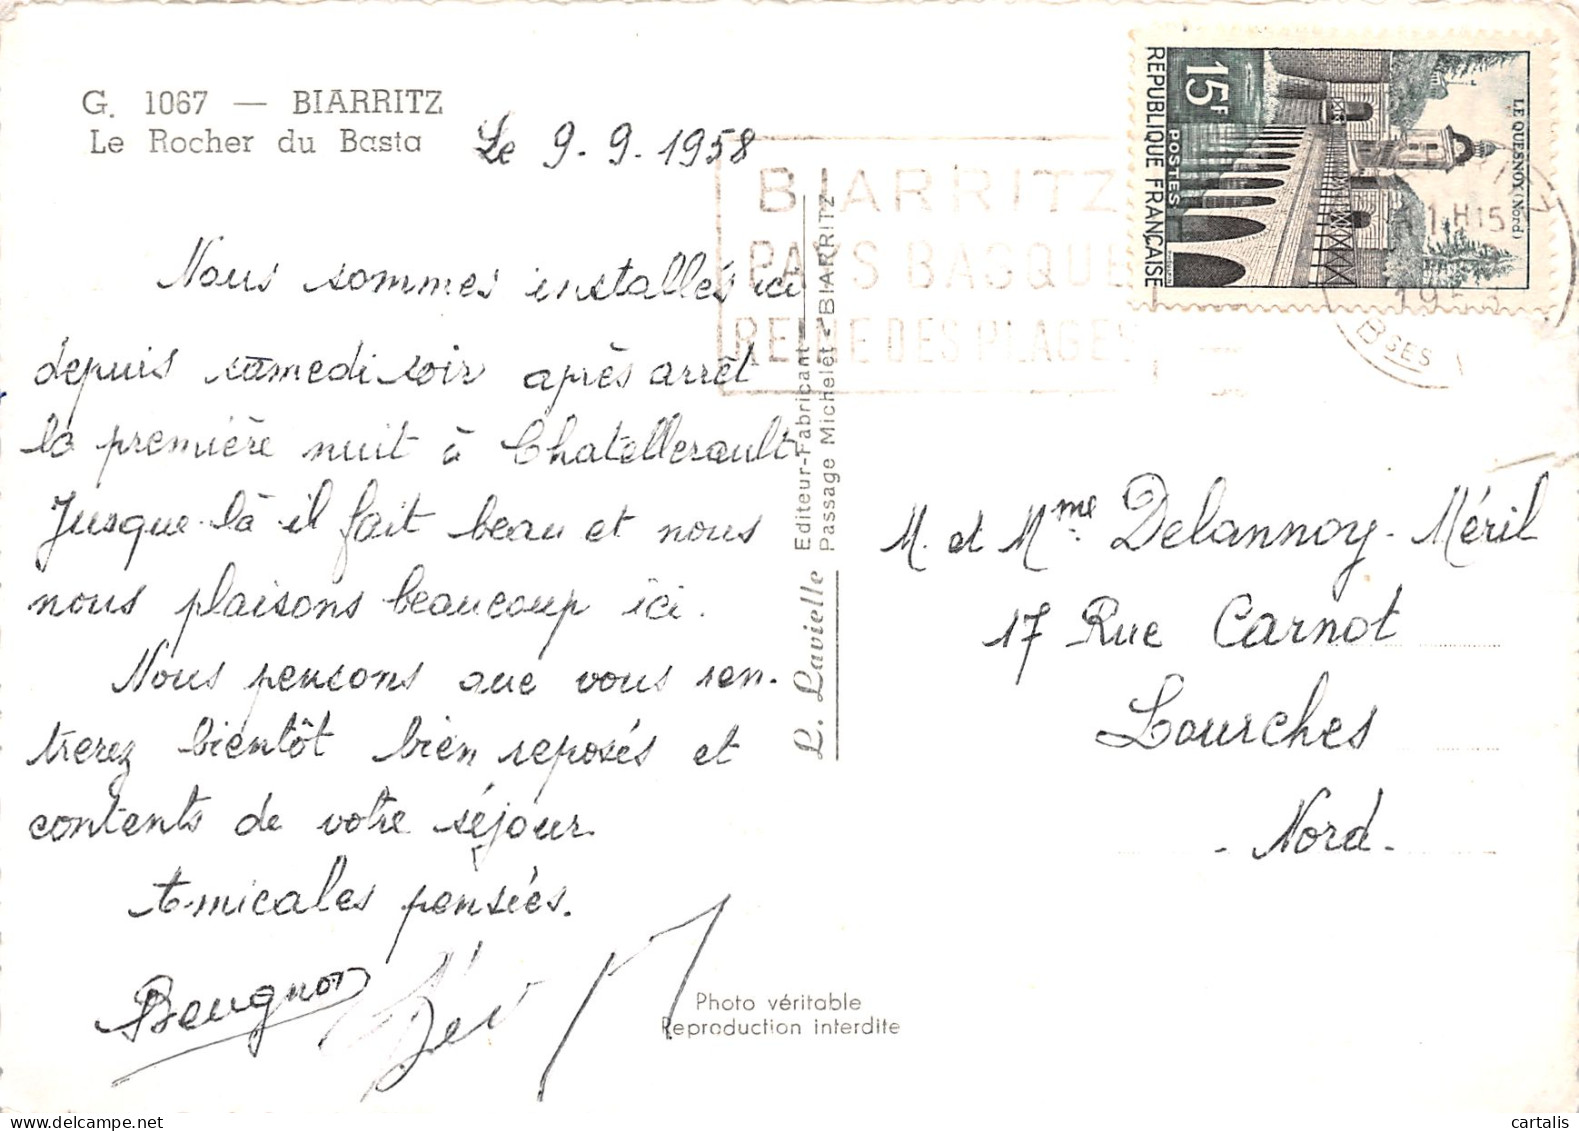 G. 1067 — BIARRITZ
Le Rocher du Basta
Le 9.9.1958
Nous sommes installés ici
depuis samedi soir après arrêt
la première nuit à Chatellerault
Jusque là il fait beau et nous
nous plaisons beaucoup ici.
Nous pensons que vous ren-
trerez bientôt bien reposés et
contents de votre séjour.
Amicales pensées.
Beugnot
Photo véritable
Reproduction interdite
L. Lavielle Editeur-Fabricant
Passage Michelet - BIARRITZ
BIARRITZ
PAYS BASQUE
REINE DES PLAGES
REPUBLIQUE FRANÇAISE
15F
POSTES
LE QUESNOY (Nord)
11H15
BSES
M. et Mme Delannoy-Méril
17 Rue Carnot
Lourches
- Nord -
cartalis